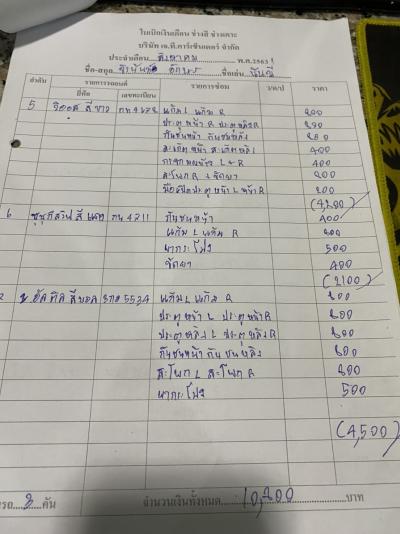 ใบเบิกเงินเดือน ช่างสี ช่างเคาะ
บริษัท เจ.ที.คาร์เซ็นเตอร์ จำกัด
ประจำเดือน สิงหาคม พ.ศ.2563
ชื่อ-สกุล ชื่อเล่น
ลำดับ รายการรถยนต์ รายการซ่อม ว/ด/ป ราคา
ยี่ห้อ เลขทะเบียน
5 วีออส สีขาว แก้ม L แก้ม R 800
ประตูหน้า R ประตูหลัง R 800
กันชนหน้า กันชนหลัง 800
400
กระจกมองข้าง L + R 400
สะโพก R 800
ประตูหน้า L หน้า R 200
(4,200)
6 ซูซูกิสวิฟ สีแดง กันชนหน้า 400
แก้ม L แก้ม R 800
ฝากระโปรง 500
400
(2100)
สีบรอล 5524 แก้ม L แก้ม R 800
ประตูหน้า L ประตูหน้า R 800
ประตูหลัง L ประตูหลัง R 800
กันชนหน้า กันชนหลัง 800
สะโพก L สะโพก R 800
ฝากระโปรง 500
(4,500)
รถ 3 คัน จำนวนเงินทั้งหมด 10,800 บาท